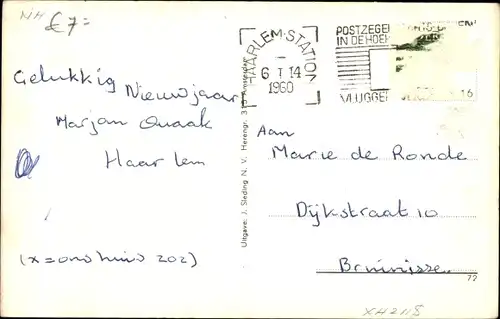 NH £ 7=
HAARLEM-STATION
6 I 14
1960
POSTZEGEL
IN DE HOEK
VLUGGER
16
Gelukkig Nieuwjaar
Marjan Quaak
Haarlem
(x = ons huis 202)
Uitgave: J. Sleding N. V. Herengr. Amsterdam
Aan
Marie de Ronde
Dijkstraat 10
Bruinisse
72
XH2118